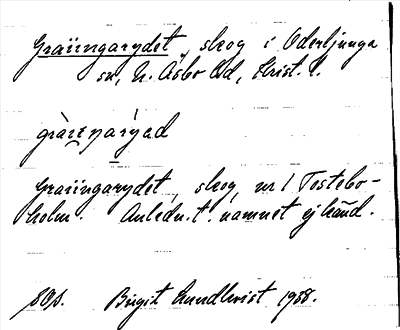 Graiingarydet, skog i Oderljunga
sn, N. Åsbo hd, Krist. l.
Graiingarydet, skog, nr 1 Tostebo-
holm. Anledn. t. namnet ej känd.
Birgit Lundkvist 1938.